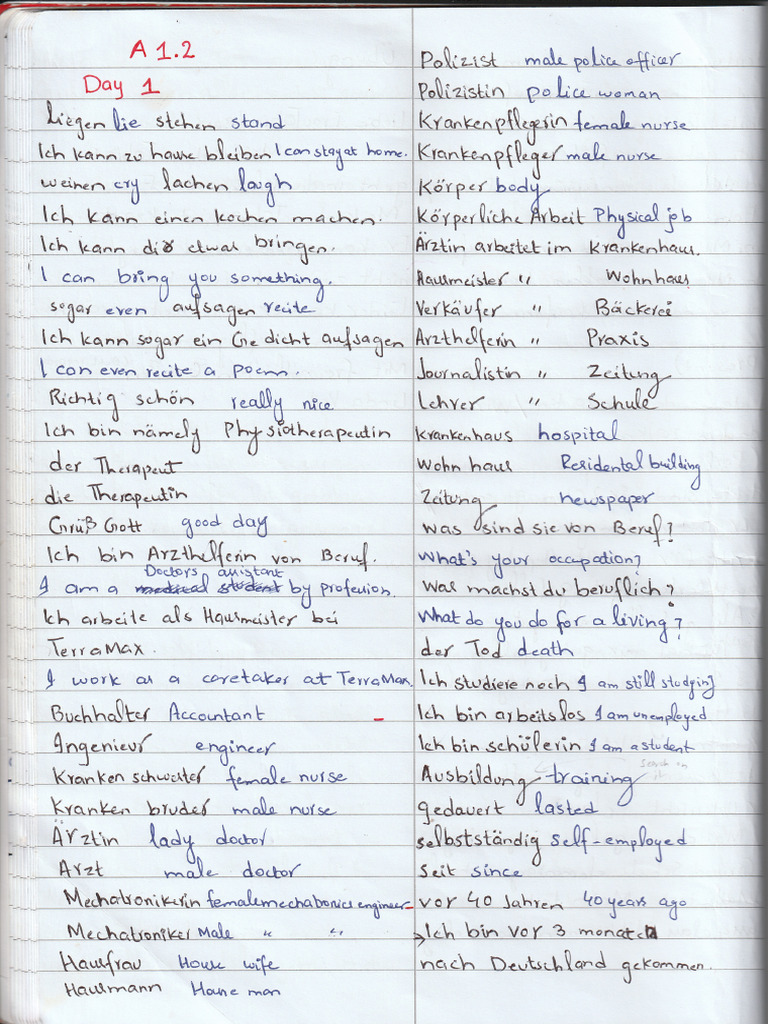 A 1.2
Day 1
liegen lie stehen stand
Ich kann zu hause bleiben I can stay at home.
weinen cry lachen laugh
Ich kann einen kochen machen.
Ich kann dir etwas bringen.
I can bring you something.
sogar even aufsagen recite
Ich kann sogar ein Gedicht aufsagen
I can even recite a poem.
Richtig schön really nice
Ich bin nämely Physiotherapeutin
der Therapeut
die Therapeutin
Grüß Gott good day
Ich bin Arzthelferin von Beruf.
Doctors assistant
I am a medical student by profession.
Ich arbeite als Hausmeister bei
TerraMax.
I work as a caretaker at TerraMax.
Buchhalter Accountant
Ingenieur engineer
Kranken schwester female nurse
Kranken bruder male nurse
Ärztin lady doctor
Arzt male doctor
Mechatronikerin female mechatronics engineer
Mechatroniker Male " "
Hausfrau House wife
Hausmann House man
Polizist male police officer
Polizistin police woman
Krankenpflegerin female nurse
Krankenpfleger male nurse
Körper body
Körperliche Arbeit Physical job
Ärztin arbeitet im Krankenhaus.
Hausmeister " Wohnhaus
Verkäufer " Bäckerei
Arzthelferin " Praxis
Journalistin " Zeitung
Lehrer " Schule
Krankenhaus hospital
Wohn haus Residental building
Zeitung newspaper
Was sind sie von Beruf?
What's your occupation?
Was machst du beruflich?
What do you do for a living?
der Tod death
Ich studiere noch I am still studying
Ich bin arbeitslos I am unemployed
Ich bin schülerin I am a student
Ausbildung training
search in
it
gedauert lasted
selbstständig self-employed
Seit since
vor 40 Jahren 40 years ago
Ich bin vor 3 monaten
nach Deutschland gekommen.